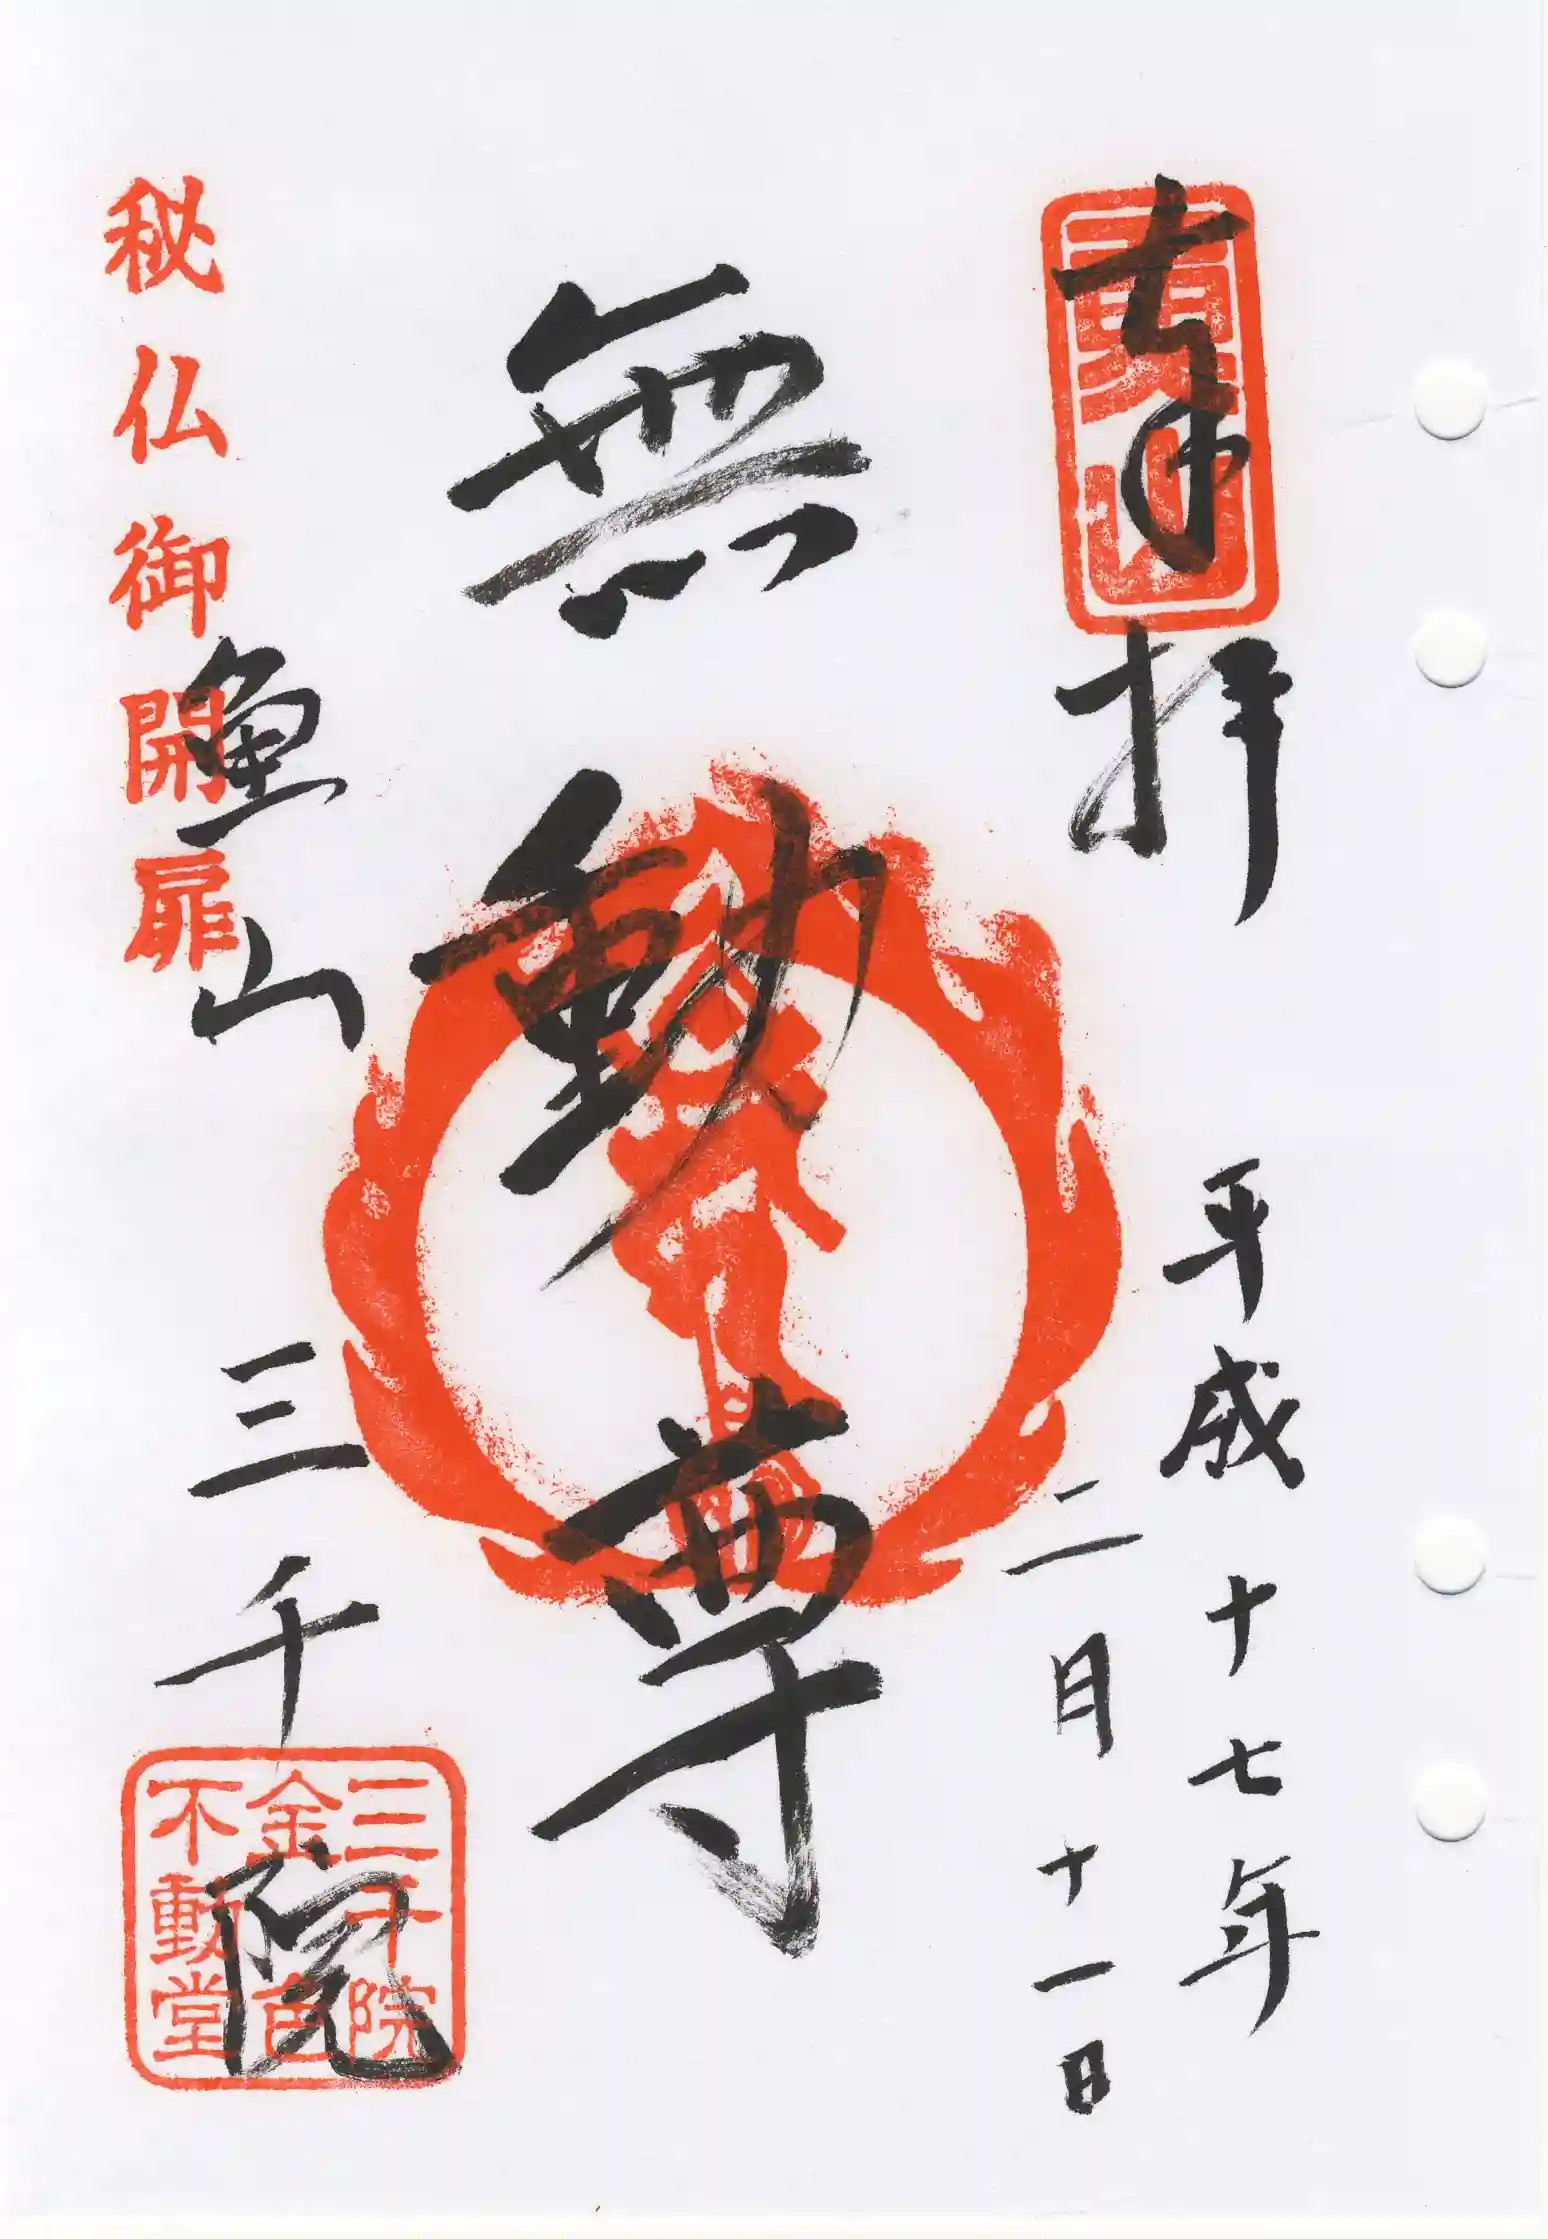 奉拝
平成十七年
二月十一日
無動尊
魚山 三千院
秘仏御開扉
三千院
金色
不動堂